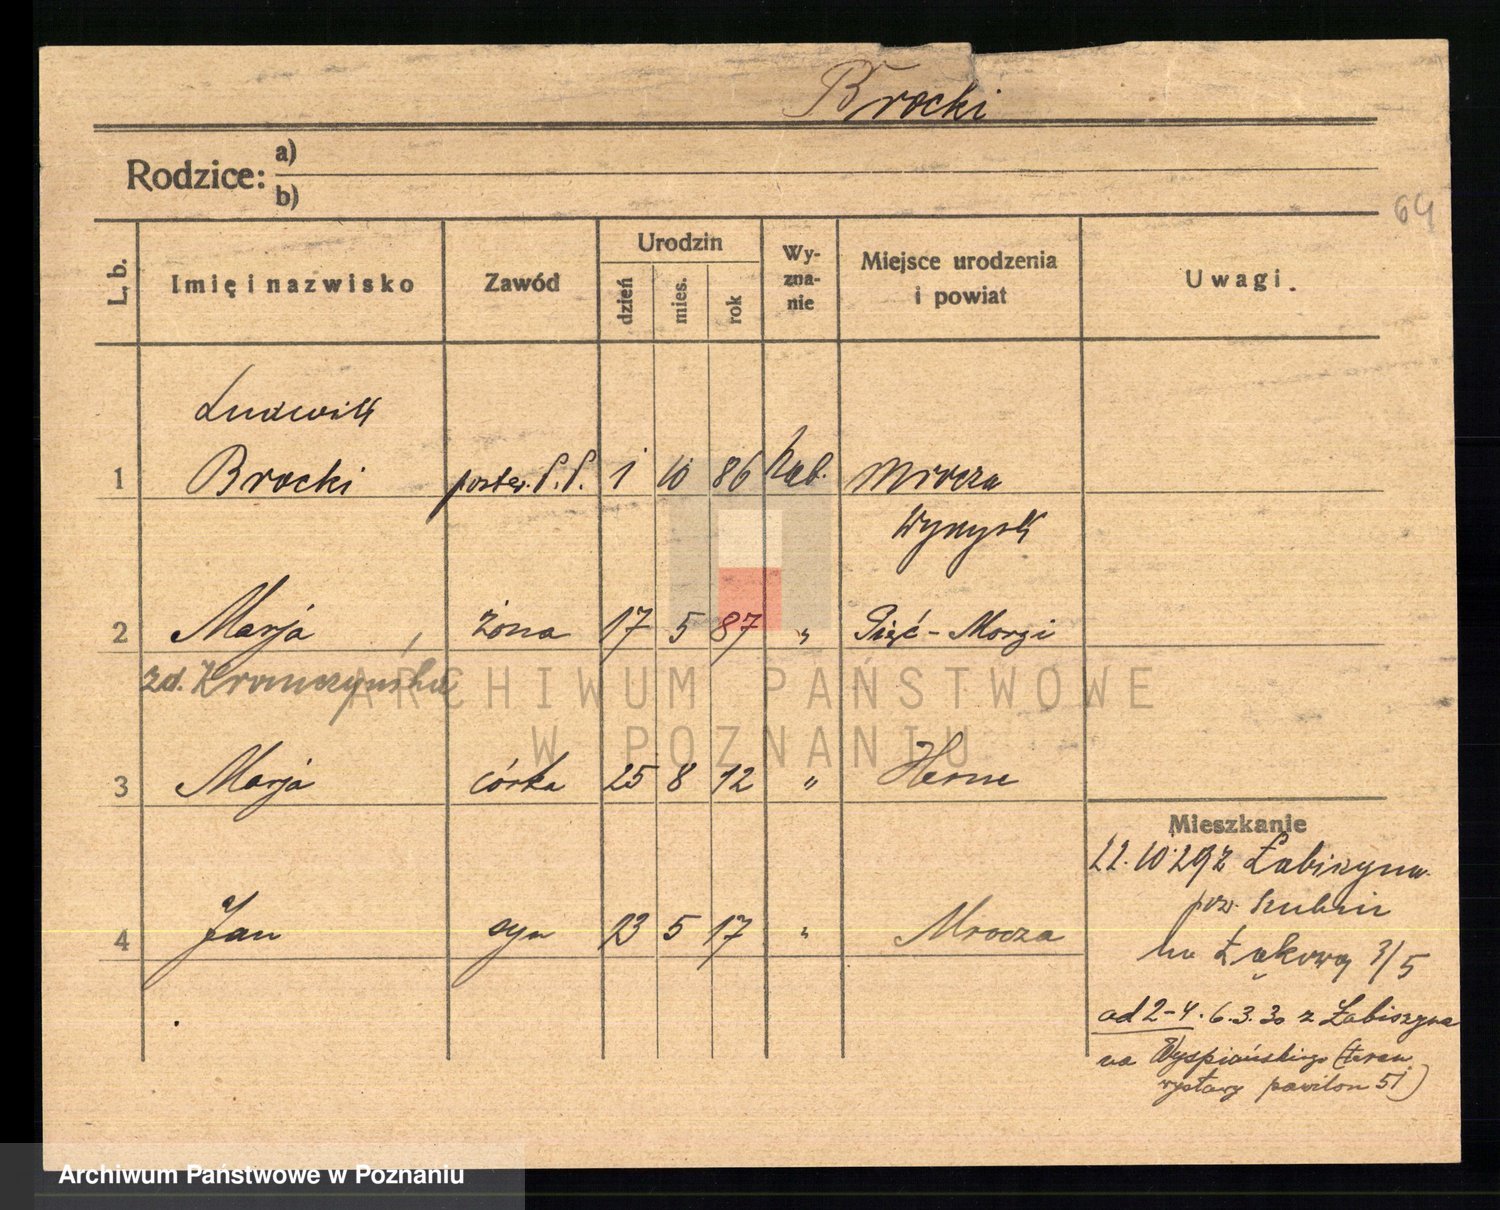 Brocki
Rodzice: a)
b)
64
L. b. Imię i nazwisko Zawód Urodzin dzień mies. rok Wy-zna-nie Miejsce urodzenia i powiat Uwagi.
Ludwik
1 Brocki poster. P.P. 1 10 86 kat. Mrocza
Wyrzysk
2 Marja żona 17 5 87 " Pięć-Morgi
zd.
3 Marja córka 25 8 12 " Herne
Mieszkanie
22.10.29 z Łabiszyna
pow. Szubin
4 Jan syn 13 5 17 " Mrocza
na Łąkową 3/5
od 2-4. 6.3.30 z Łabiszyna
na Wyspiańskiego (teren
wystawy pawilon 51)
ARCHIWUM PAŃSTWOWE
W POZNANIU
Archiwum Państwowe w Poznaniu